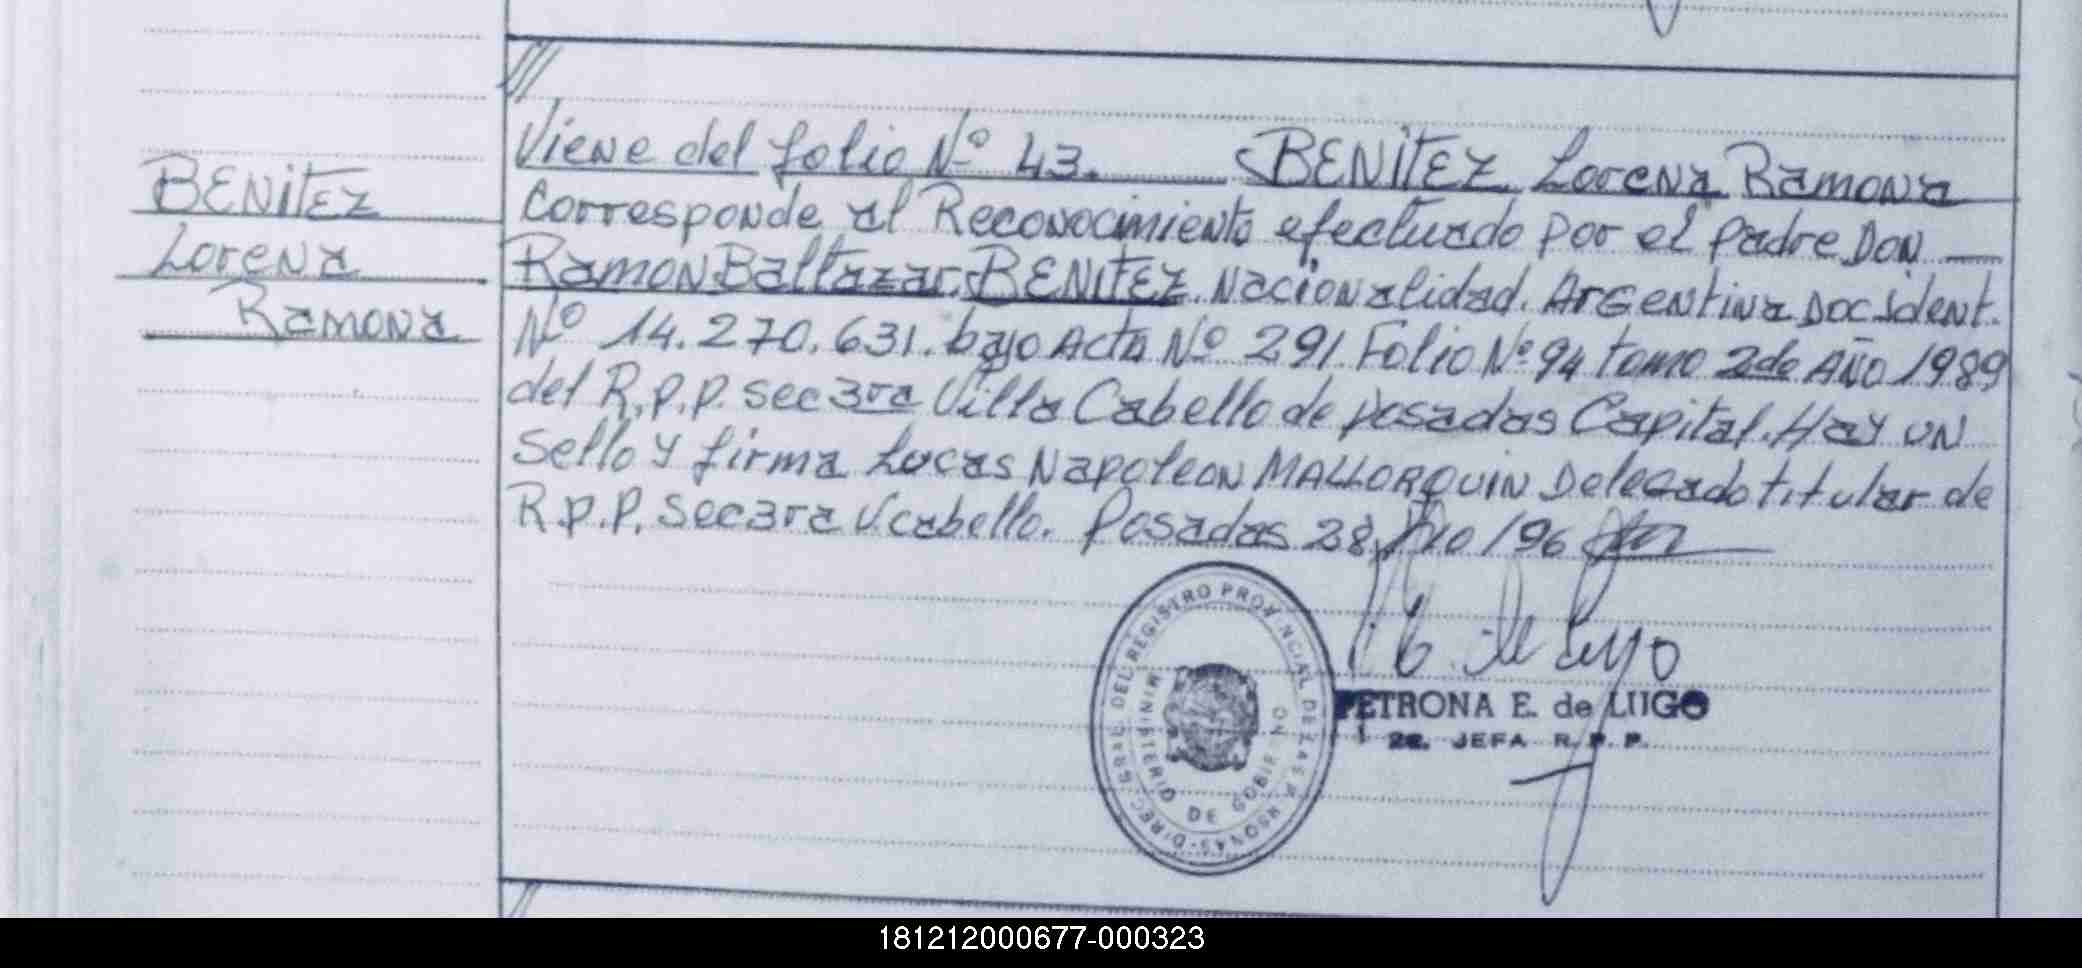 BENITEZ
Lorena
Ramona
Viene del folio Nº 43. BENITEZ Lorena Ramona
Corresponde al Reconocimiento efectuado por el padre DON
Ramon Baltazar. BENITEZ. Nacionalidad. Argentina Doc Ident.
Nº 14.270.631. bajo Acta Nº 291. Folio Nº 94 tomo 2do Año 1989
del R.P.P. sec 3ra Villa Cabello de Posadas Capital. Hay un
Sello y firma Lucas Napoleon MALLORQUIN Delegado titular de
R.P.P. Sec 3ra V. cabello. Posadas 28 /96
DIREC. GRAL. DEL REGISTRO PROVINCIAL DE LAS PERSONAS
MINISTERIO DE GOBIERNO
de Lugo
PETRONA E. de LUGO
2a. JEFA R. P. P.
181212000677-000323